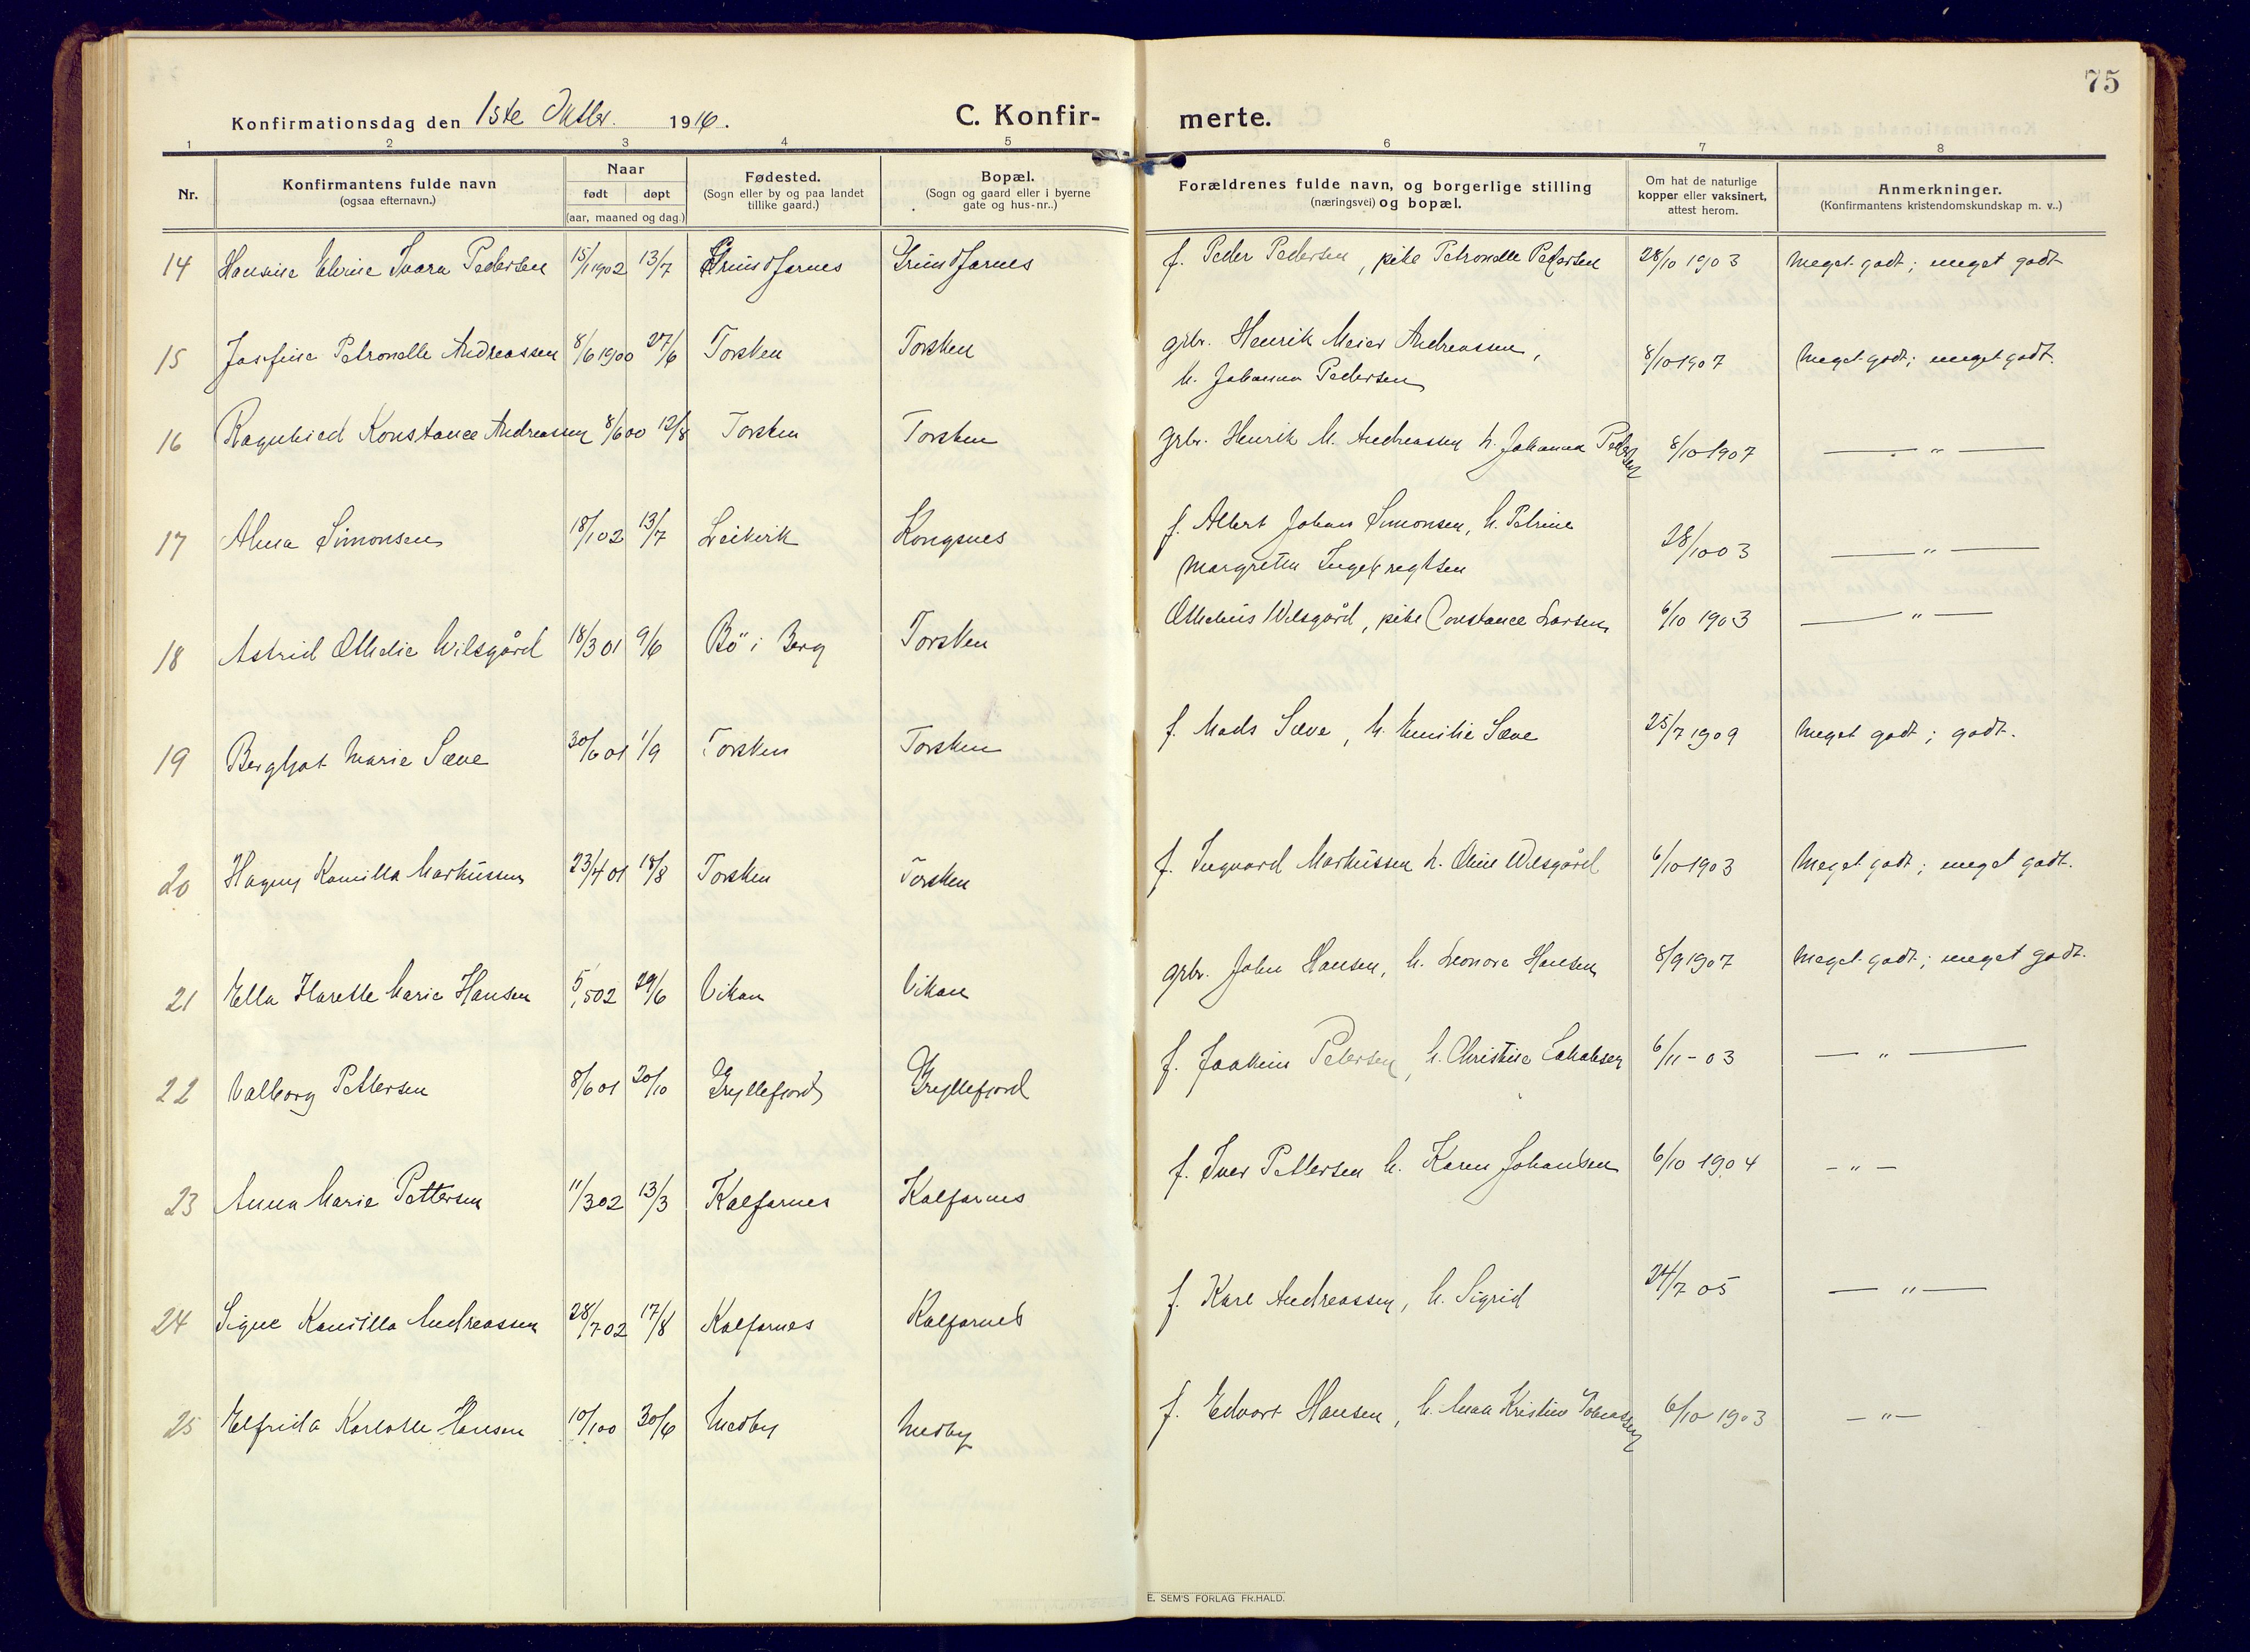 75
Konfirmationsdag den 1ste Oktbr. 1916.
C. Konfir-merte.
1 2 3 4 5 6 7 8
Nr.
Konfirmantens fulde navn
(ogsaa efternavn.)
Naar
født døpt
(aar, maaned og dag.)
Fødested.
(Sogn eller by og paa landet
tillike gaard.)
Bopæl.
(Sogn og gaard eller i byerne
gate og hus-nr..)
Forældrenes fulde navn, og borgerlige stilling
(næringsvei) og bopæl.
Om hat de naturlige
kopper eller vaksinert,
attest herom.
Anmerkninger.
(Konfirmantens kristendomskundskap m. v..)
14 Hansine Elvine Svara Pedersen 15/1 1902 13/7 Grundfarnes Grundfarnes f. Peder Pedersen, pike Petronelle Pedersen 28/10 1903 Meget godt; meget godt
15 Josefine Petronelle Andreassen 8/6 1900 27/6 Torsken Torsken grbr. Henrik Meier Andreassen, 8/10 1907 Meget godt; meget godt.
h. Johanna Pedersen
16 Ragnhild Konstance Andreassen 8/6 00 12/8 Torsken Torsken grbr. Henrik M. Andreassen h. Johanna Pedersen 8/10 1907 — " —
17 Alma Simonsen 18/1 02 13/7 Leikvik Kongsnes f. Albert Johan Simonsen, h. Petrine 28/10 03 — " —
Margretha Ingebregtsen
18 Astrid Othelie Wilsgård 18/3 01 9/6 Bö i Berg Torsken Othelius Wilsgård, pike Constance Larsen 6/10 1903 — " —
19 Bergljot Marie Sæve 30/6 01 1/9 Torsken Torsken f. Mads Sæve, h. Emilie Sæve 25/7 1909 Meget godt; godt.
20 Hagny Kamilla Markussen 23/4 01 18/8 Torsken Torsken f. Ingvard Markussen h. Oline Wilsgård 6/10 1903 Meget godt; meget godt.
21 Ella Harette Marie Hansen 5/5 02 29/6 Vikan Vikan grbr. John Hansen, h. Leonore Hansen 8/9 1907 Meget godt; meget godt.
22 Valborg Pettersen 8/6 01 20/10 Gryllefjord Gryllefjord f. Joakim Petersen, h. Christine Jakobsen 6/11 - 03 — " —
23 Anna Marie Pettersen 11/3 02 13/3 Kalfarnes Kalfarnes f. Iver Pettersen h. Karen Johansen 6/10 1904 - " -
24 Signe Kamilla Andreassen 28/7 02 17/8 Kalfarnes Kalfarnes f. Karl Andreassen, h. Sigrid 24/7 05 — " —
25 Elfrida Karlotte Hansen 10/1 00 30/6 Medby Medby f. Edvart Hansen, h. Anna Kristine Tobiassen 6/10 1903 - " -
E. SEM'S FORLAG FR.HALD.